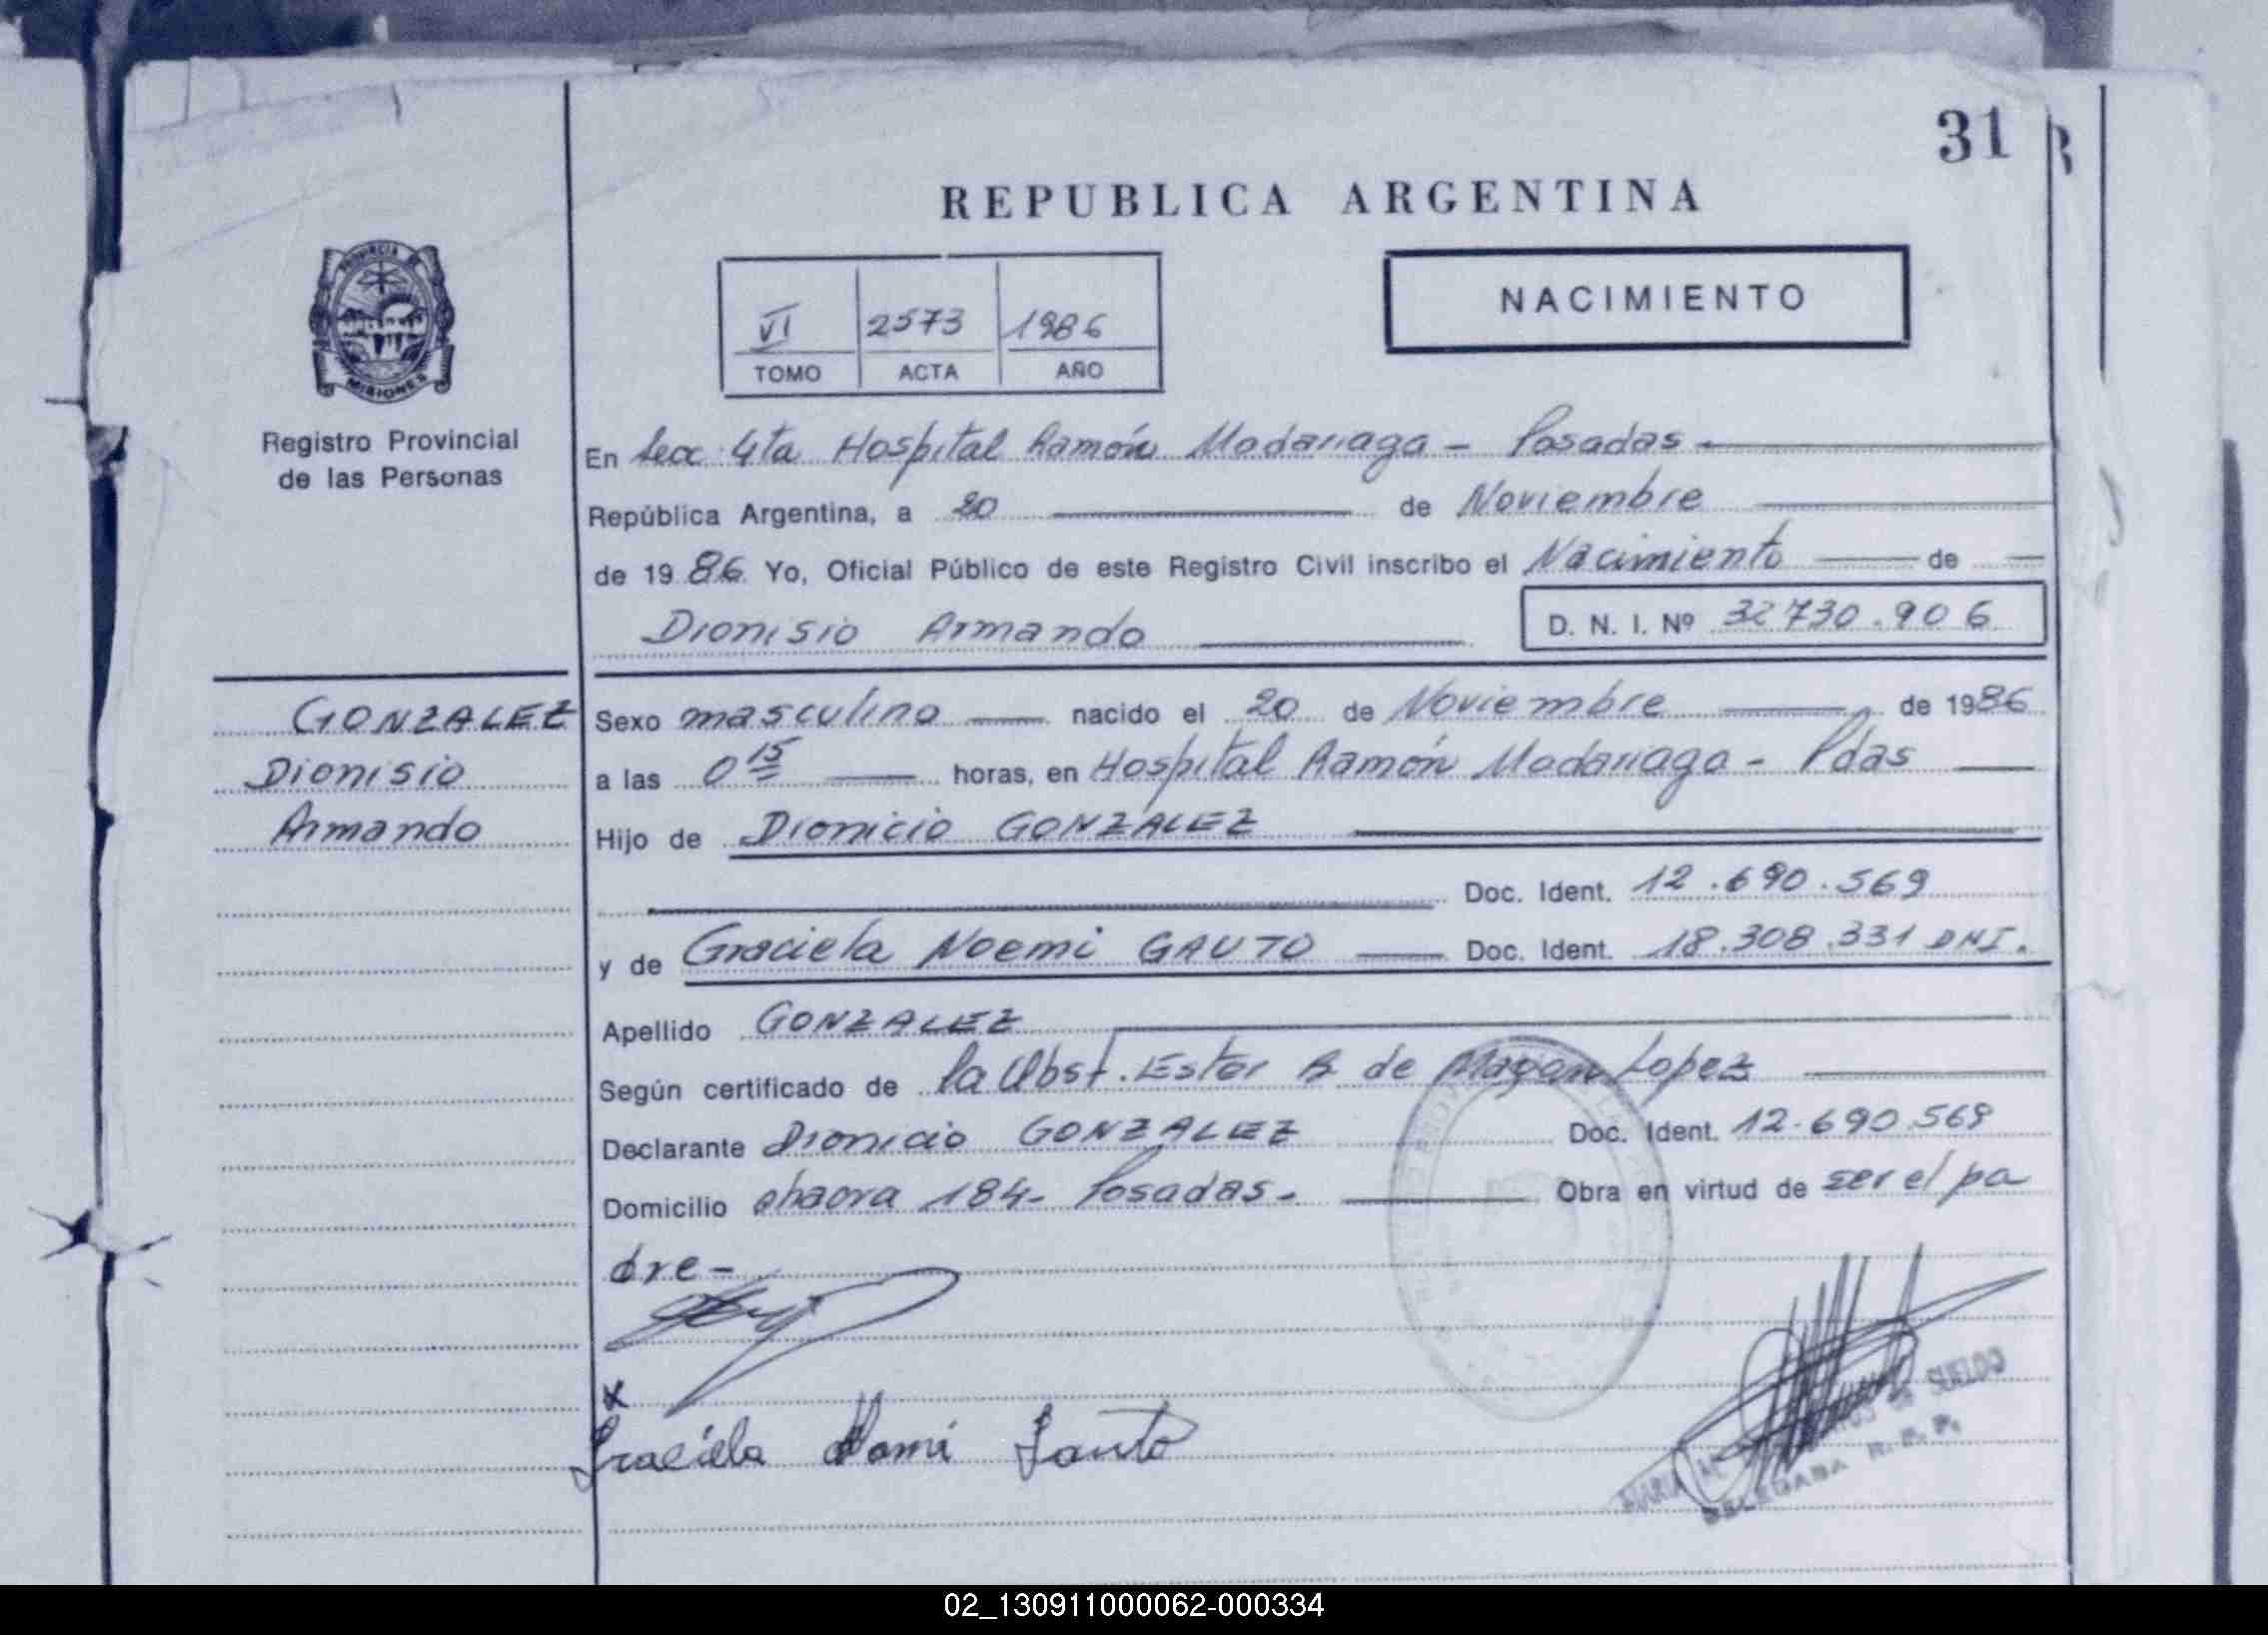 31
REPUBLICA ARGENTINA
NACIMIENTO
VI 2573 1986
TOMO ACTA AÑO
PROVINCIA DE
MISIONES
Registro Provincial
de las Personas
En Secc 4ta Hospital Ramón Madariaga - Posadas
República Argentina, a 20 de Noviembre
de 1986 Yo, Oficial Público de este Registro Civil inscribo el Nacimiento de
Dionisio Armando D. N. I. Nº 32730.906
GONZALEZ
Dionisio
Armando
Sexo masculino nacido el 20 de Noviembre de 1986
a las 0 15 horas, en Hospital Ramón Madariaga - Pdas
Hijo de Dionicio GONZALEZ
Doc. Ident. 12.690.569
y de Graciela Noemi GAUTO Doc. Ident. 18.308.331 DNI.
Apellido GONZALEZ
Según certificado de la Obst. Ester B de Lopez
Declarante Dionicio GONZALEZ Doc. Ident. 12.690.569
Domicilio chacra 184- Posadas- Obra en virtud de ser el pa
dre-
x
Graciela Gauto
MARIA SUELDO
DELEGADA R. P. P.
02_130911000062-000334